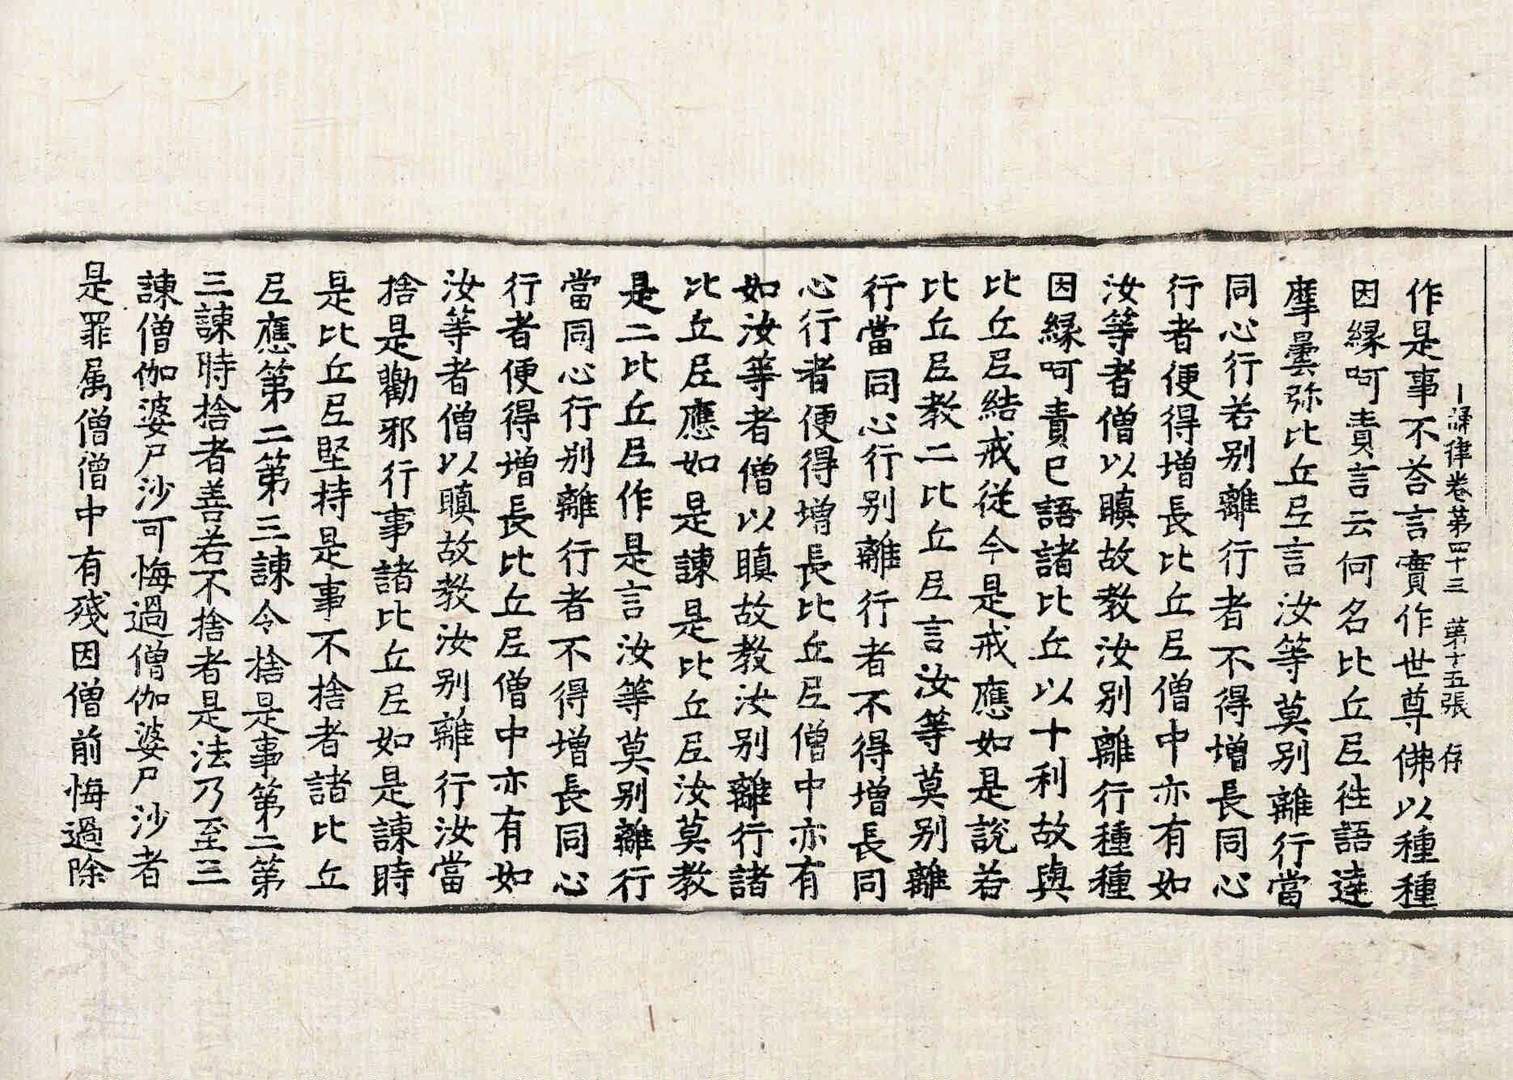 十誦律卷第四十三 第十五張 存
作是事不荅言實作世尊佛以種種
因縁呵責言云何名比丘𡰱徃語達
摩曇弥比丘𡰱言汝等莫别離行當
同心行若别離行者不得增長同心
行者便得增長比丘𡰱僧中亦有如
汝等者僧以瞋故教汝别離行種種
因縁呵責已語諸比丘以十利故與
比丘𡰱結戒從今是戒應如是說若
比丘𡰱教二比丘𡰱言汝等莫别離
行當同心行别離行者不得增長同
心行者便得增長比丘𡰱僧中亦有
如汝等者僧以瞋故教汝别離行諸
比丘𡰱應如是諫是比丘𡰱汝莫教
是二比丘𡰱作是言汝等莫别離行
當同心行别離行者不得增長同心
行者便得增長比丘𡰱僧中亦有如
汝等者僧以瞋故教汝别離行汝當
捨是勸邪行事諸比丘𡰱如是諫時
是比丘𡰱堅持是事不捨者諸比丘
𡰱應第二第三諫令捨是事第二第
三諫時捨者善若不捨者是法乃至三
諫僧伽婆尸沙可悔過僧伽婆尸沙者
是罪属僧僧中有殘因僧前悔過除